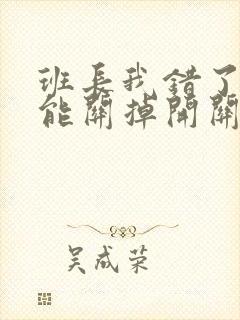 班長我錯了
能關掉開關
吴成荣